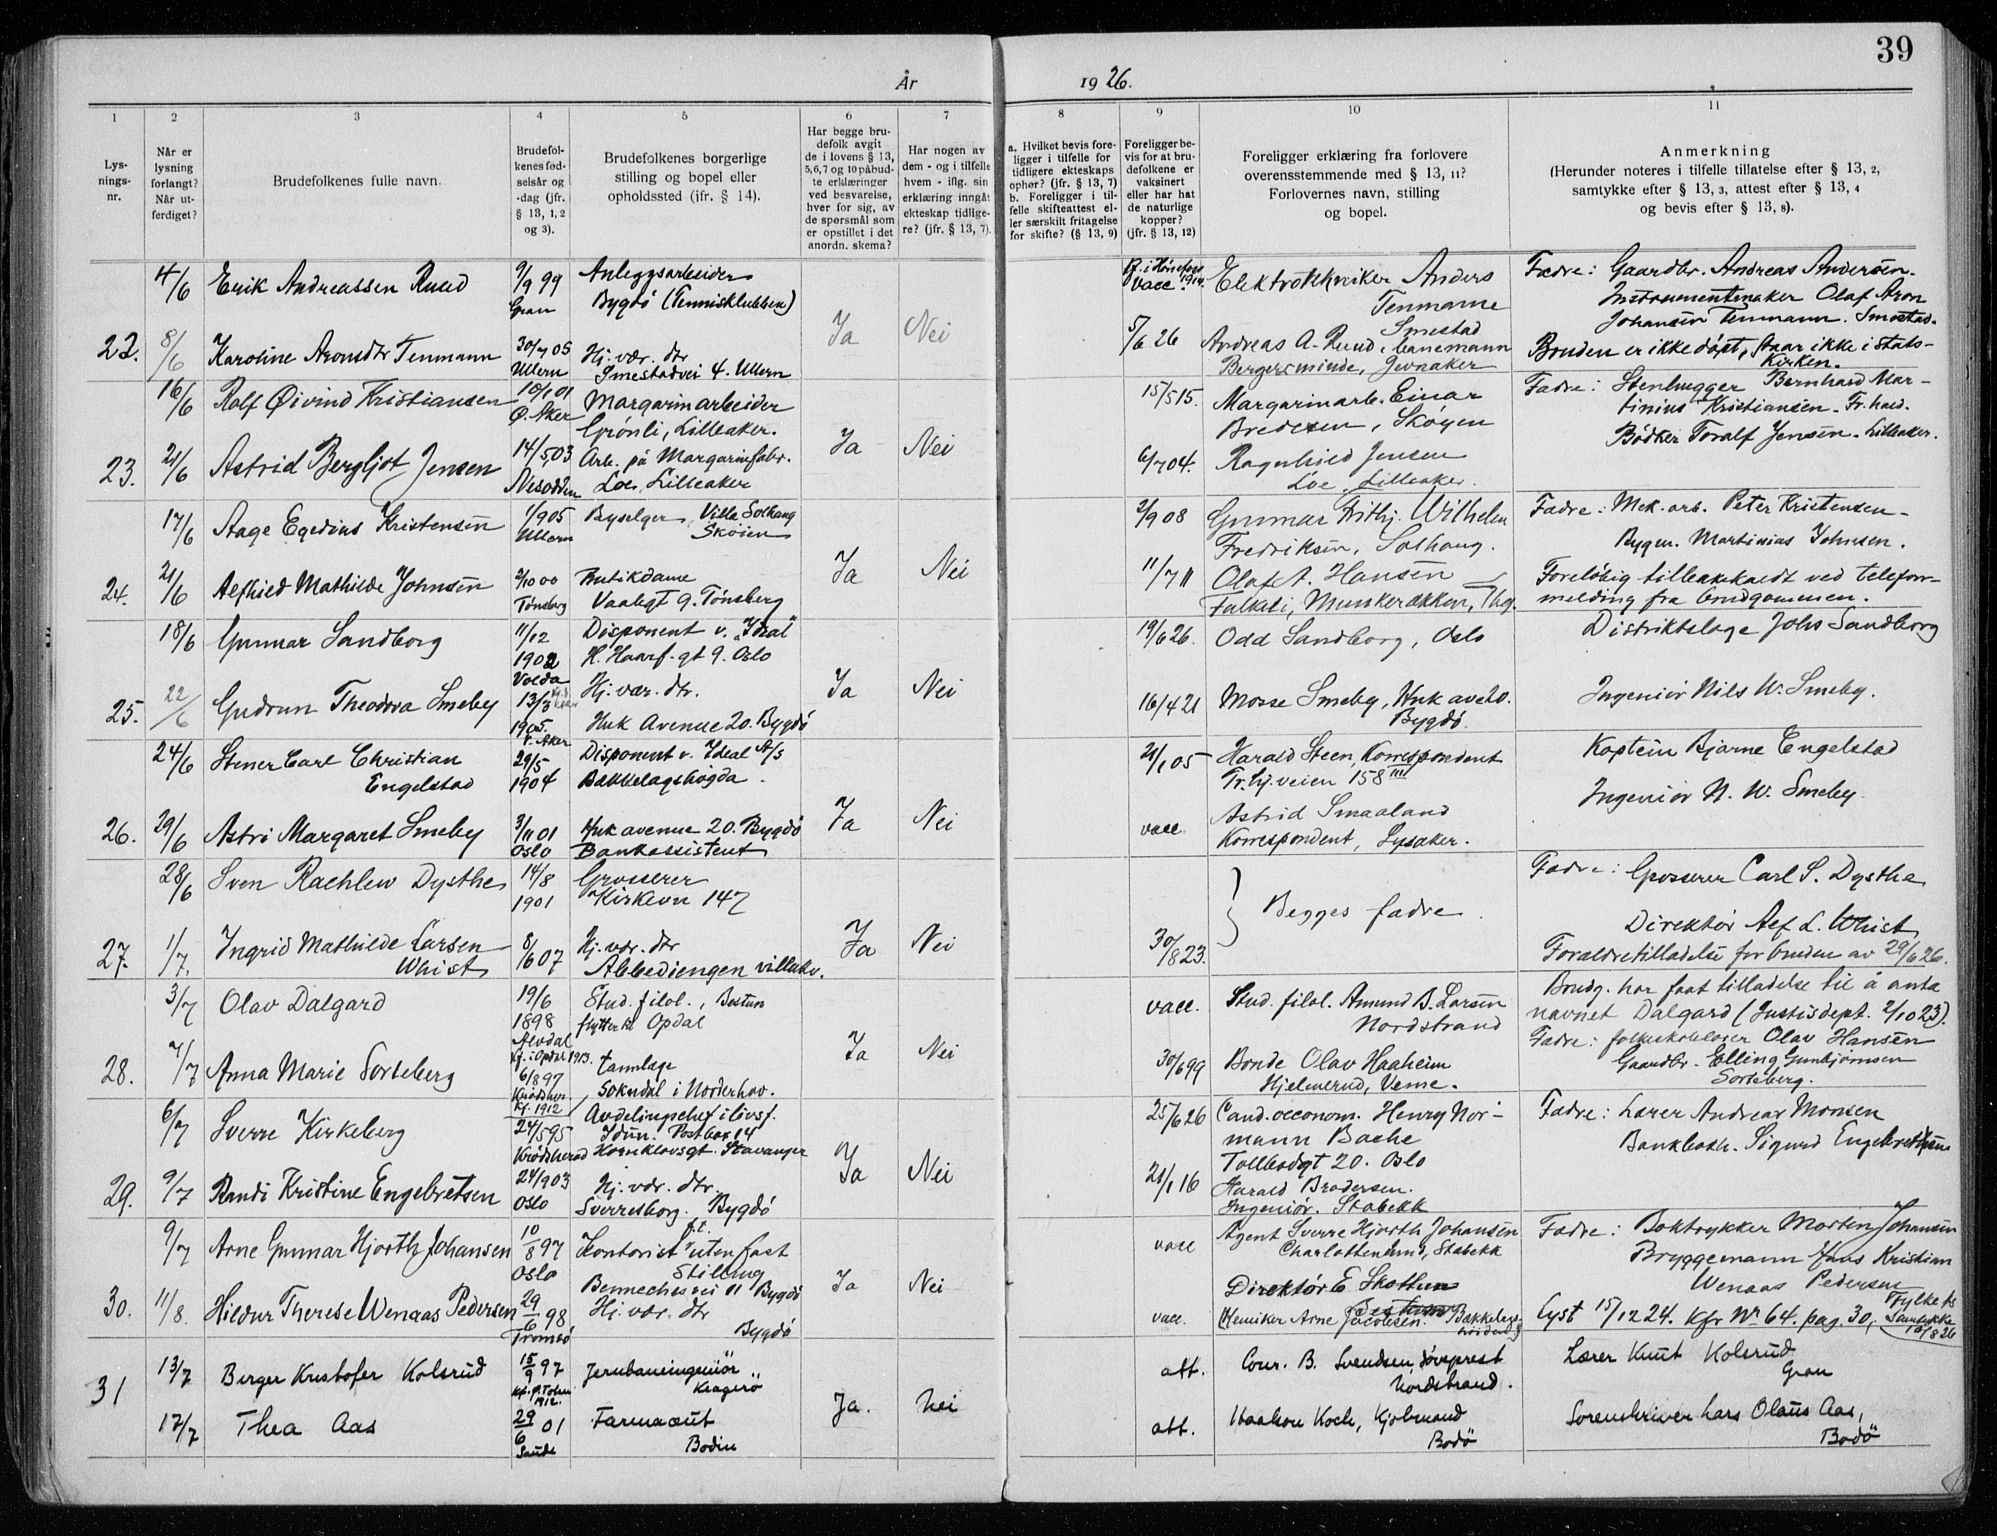 39
År 1926.
1 2 3 4 5 6 7 8 9 10 11
Lys-
nings-
nr.
Når er
lysning
forlangt?
Når ut-
ferdiget?
Brudefolkenes fulle navn.
Brudefol-
kenes fød-
selsår og
-dag (jfr.
§ 13, 1, 2
og 3).
Brudefolkenes borgerlige
stilling og bopel eller
opholdssted (jfr. § 14).
Har begge bru-
defolk avgit
de i lovens § 13,
5,6,7 og 10 påbud-
te erklæringer
ved besvarelse,
hver for sig, av
de spørsmål som
er opstillet i det
anordn. skema?
Har nogen av
dem - og i tilfelle
hvem - iflg. sin
erklæring inngåt
ekteskap tidlige-
re? (jfr. § 13, 7).
a. Hvilket bevis fore-
ligger i tilfelle for
tidligere ekteskaps
ophør? (jfr. § 13, 7)
b. Foreligger i til-
felle skifteattest el-
ler særskilt fritagelse
for skifte? (§ 13, 9)
Foreligger be-
vis for at bru-
defolkene er
vaksinert
eller har hat
de naturlige
kopper?
(jfr. § 13, 12)
Foreligger erklæring fra forlovere
overensstemmende med § 13, 11?
Forlovernes navn, stilling
og bopel.
Anmerkning
(Herunder noteres i tilfelle tillatelse efter § 13, 2,
samtykke efter § 13, 3, attest efter § 13, 4
og bevis efter § 13, 8).
4/6 Erik Andreassen Ruud 9/9 99 Gran
Anleggsarbeider
Bygdö (Tennisklubben)
vacc. 1914.
Elektrotekniker Anders
Tenmann
Smestad
Fædre: Gaardbr. Andreas Andersen.
Instrumentmaker Olaf Aron
Johansen Tenmann. Smestad.
22. 8/6 Karoline Aronsdtr Tenmann 30/7 05 Ullern
Hj. vær. dtr
Smestadvei 4. Ullern
Ja Nei
5/6 26 Andreas A. Ruud, banemann
Bergersminde, Jevnaker
Bruden er ikke döpt, staar ikke i stats-
kirken.
16/6 Rolf Øivind Kristiansen 10/1 01 Ø. Aker
Margarinarbeider
Grönli, Lilleaker.
15/5 15. Margarinarb. Einar
Bredesen, Skøyen
Fædre: Stenhugger Bernhard Mar-
tinius Kristiansen. Fr.hald.
Bödker Toralf Jensen. Lilleaker.
23. 21/6 Astrid Bergljot Jensen 14/5 03 Nesodden
Arb. på Margarinfabr.
Loe, Lilleaker
Ja Nei
6/7 04. Ragnhild Jensen
Loe, Lilleaker.
17/6 Aage Egedius Kristensen 1/9 05 Ullern
Byselger, Villa Solhaug
Skøien
2/9 08 Gunnar Frithj. Wilhelm
Fredriksen, Solhaug.
Fædre: Mek. arb. Peter Kristensen-
Bygm. Martinius Johnsen.
24. 21/6 Alfhild Mathilde Johnsen 2/10 00 Tönsberg
Butikdame
Vaalegt 9. Tönsberg
Ja Nei
11/7 11 Olaf A. Hansen
Falkeli, Munkerækken, Tbg.
Forelöbig tilbakekaldt ved telefon-
melding fra brudgommen.
18/6 Gunnar Sandborg 11/12 1902 Volda
Disponent v. "Ideal"
H. Haarf. gt 9. Oslo
19/6 26. Odd Sandborg, Oslo
Distriktslæge Johs Sandborg
25. 22/6 Gudrun Theodora Smeby 13/3 1905. V. Aker
Hj. vær. dtr.
Huk Avenue 20. Bygdö
Ja Nei
16/4 21 Mosse Smeby, Huk ave 20.
Bygdö.
Ingeniör Nils W. Smeby.
24/6 Stener Carl Christian
Engelstad
29/5 1904
Disponent v. Ideal A/S
Bækkelagshögda.
21/1 05 Harald Steen, Korrespondent
Tr.hj.veien 158 III
Kaptein Bjarne Engelstad
26. 29/6 Astri Margaret Smeby 3/11 01 Oslo
Huk avenue 20. Bygdö
Bankassistent
Ja Nei
vacc. Astrid Smaaland
Korrespondent, Lysaker.
Ingeniör N. W. Smeby.
28/6 Sven Rachlew Dysthe 14/8 1901
Grosserer
Kirkevn 147
Begges fædre.
Fædre: Grosserer Carl S. Dysthe
Direktör Alf L. Whist
27. 1/7. Ingrid Mathilde Larsen
Whist
8/6 07
Hj. vær. dtr
Abbediengen villakv.
Ja Nei
30/8 23.
Forældretilladelse for bruden av 29/6 26.
3/7 Olav Dalgard 19/6 1898 Alvdal
Kf. i Opdal 1913.
Stud. filol., Bestum
flytter til Opdal
vacc. Stud. filol. Amund B. Larsen
Nordstrand
Brudg. har faat tilladelse til å anta
navnet Dalgard (Justisdept. 2/10 23).
Fædre: folkeskolelærer Olav Hansen
28. 7/7 Anna Marie Sorteberg 6/8 97 Krödsher.
Kf. 1912
Tannlæge
Sokndal i Norderhov.
Ja Nei
30/6 99 Bonde Olav Haaheim
Hjelmerud, Veme.
Gaardbr. Elling Gunbjörnsen
Sorteberg.
6/7 Sverre Kirkeberg 24/5 95 Krödsherad
Avdelingschef i livsf.
Idun. Postbox 14
Hornklovsgt. Stavanger
25/6 26 Cand. oeconom. Henry Nor-
mann Bache
Tollbodgt 20. Oslo
Fædre: Lærer Andreas Monsen
Bankboth. Sigurd Engebretsen
29. 9/7 Randi Kristine Engebretsen 24/9 03 Oslo
Hj. vær. dtr.
Sverresborg. Bygdö
Ja Nei
21/1 16 Harald Brodersen.
Ingeniör. Stabekk
9/7 Arne Gunnar Hjorth Johansen 10/8 97 Oslo
Kontorist f.t. uten fast
Stilling
Bennechesvei 11 Bygdö
vacc Agent Sverre Hjorth Johansen
Charlottenlund, Stabekk
Fædre: Boktrykker Morten Johansen
Bryggemann Hans Kristian
Wenaas Pedersen
30. 11/8. Hildur Therese Wenaas Pedersen 29/6 98 Tromsö
Hj. vær. dtr
Bygdö
Ja Nei
Direktör E Skothun
Bestum
vacc. Kemiker Arne Jacobsen. Bækkelags-
Lyst 15/12 24. Kfr No 64. pag. 30,
Fylkets
Samtykke
10/8 26
31 13/7 Berger Kristofer Kolsrud 15/9 97
1912.
Jernbaneingeniör
Kragerö
att. Conr. B. Svendsen, döveprest
Nordstrand.
Lærer Knut Kolsrud
Gran
17/7 Thea Aas 29/6 01 Sande
Farmaceut
Bodin
Ja. Nei
att. Haakon Koch, Kjöbmand
Bodö
Sorenskriver Lars Olaus Aas,
Bodö